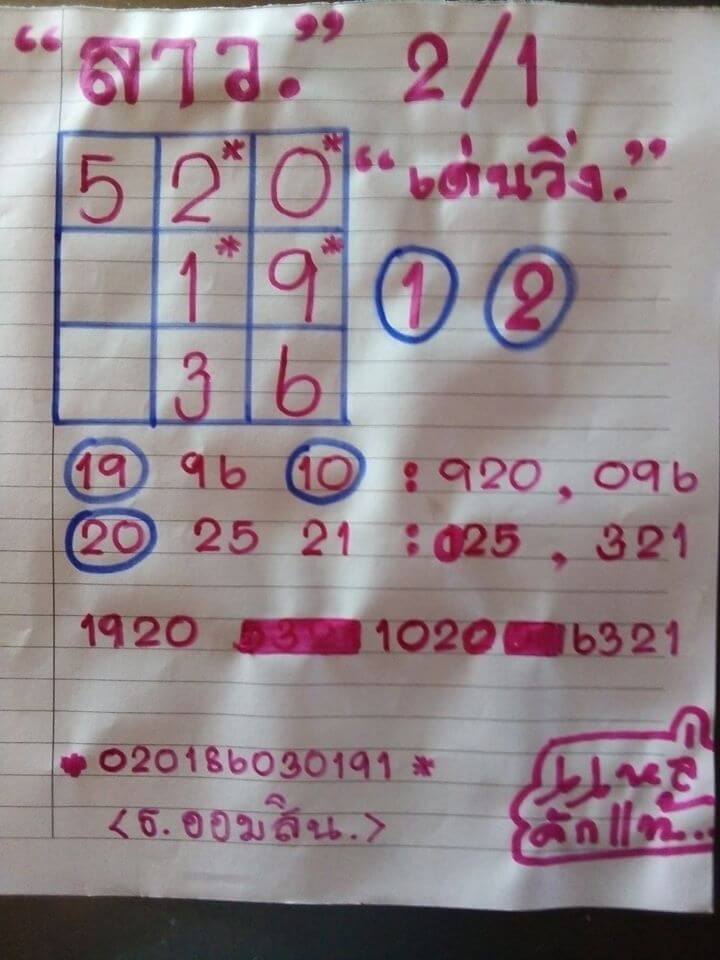 “ลาว.” 2/1
5 2* 0* “เด่นวิ่ง.”
1* 9* 1 2
3 6
19 96 10 : 920 , 096
20 25 21 : 025 , 321
1920 1020 6321
*020186030191*
<ธ.ออมสิน.>